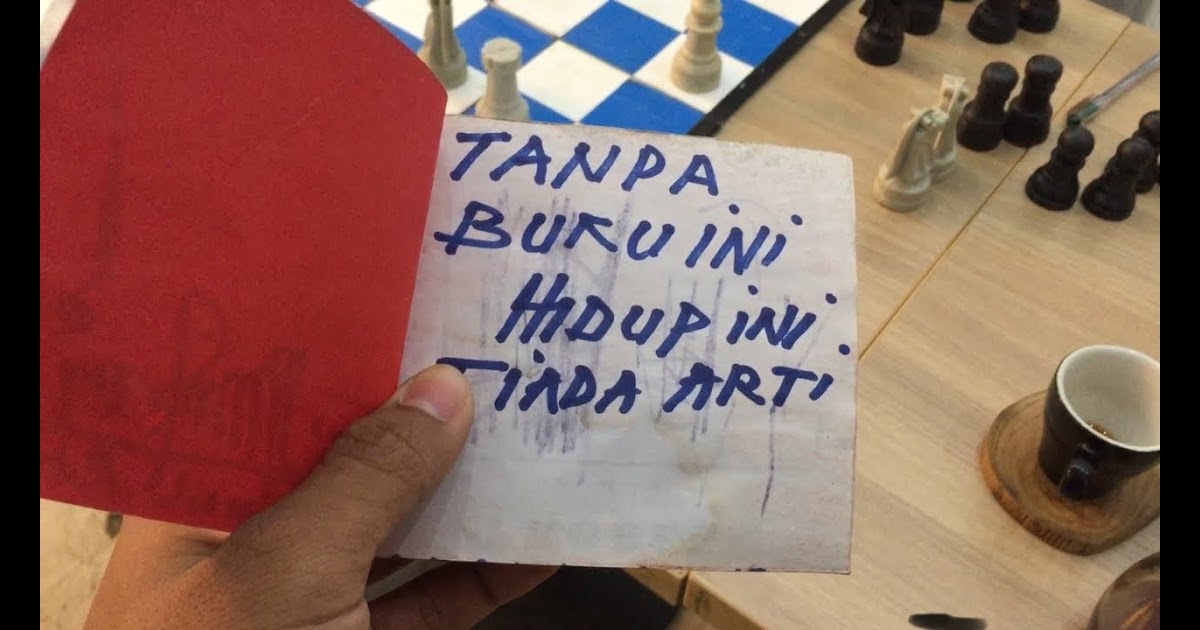 TANPA
BUKU INI
HIDUP INI
TIADA ARTI